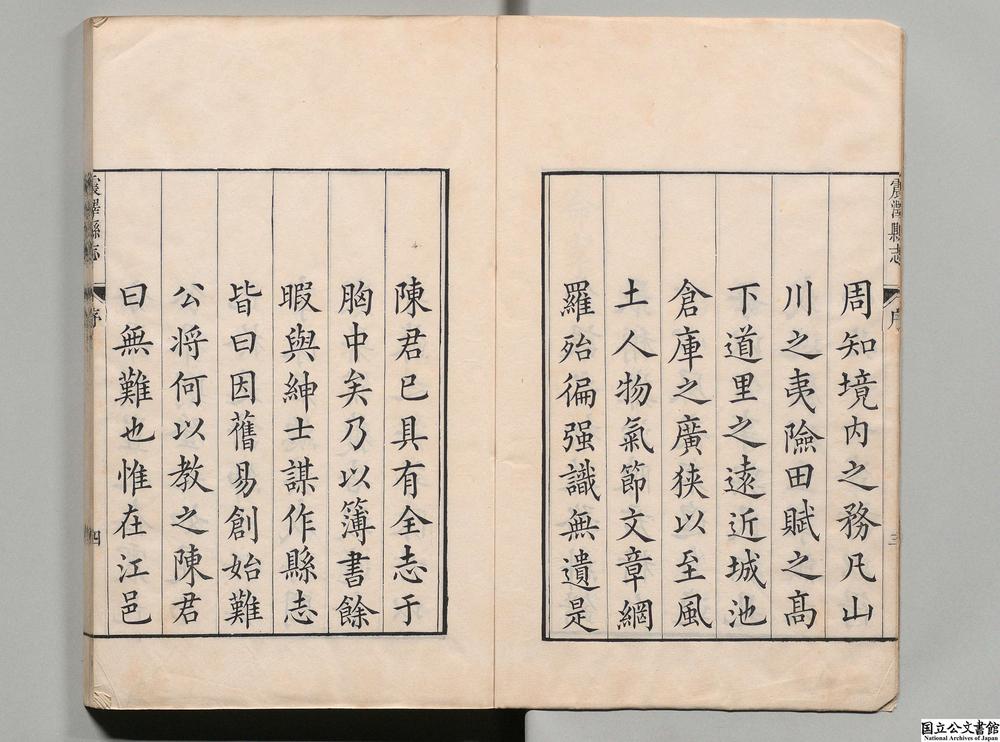 震澤縣志
序
三
周知境内之務凡山
川之夷險田賦之髙
下道里之遠近城池
倉庫之廣狹以至風
土人物氣節文章網
羅殆徧强識無遺是
陳君已具有全志于
胸中矣乃以簿書餘
暇與紳士謀作縣志
皆曰因舊易創始難
公將何以教之陳君
曰無難也惟在江邑
震澤縣志
序
四
国立公文書館
National Archives of Japan